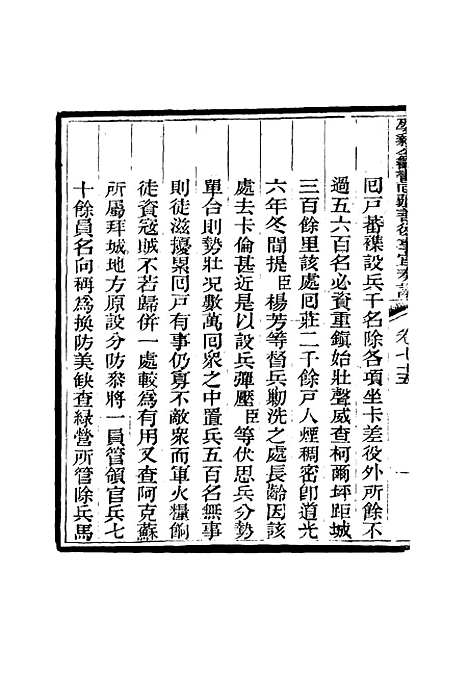 回戶蕃襍設兵千名除各項坐卡差役外所餘不
過五六百名必資重鎮始壯聲威查柯爾坪距城
三百餘里該處回莊二千餘戶人煙稠密卽道光
六年冬間提臣楊芳等督兵勦洗之處長齡因該
處去卡倫甚近是以設兵彈壓臣等伏思兵分勢
單合則勢壯况數萬回衆之中置兵五百名無事
則徒滋擾累回戶有事仍寡不敵衆而軍火糧餉
徒資寇賊不若歸併一處較為有用又查阿克蘇
所屬拜城地方原設分防叅將一員管領官兵七
十餘員名向稱為換防美缺查綠營所管除兵馬